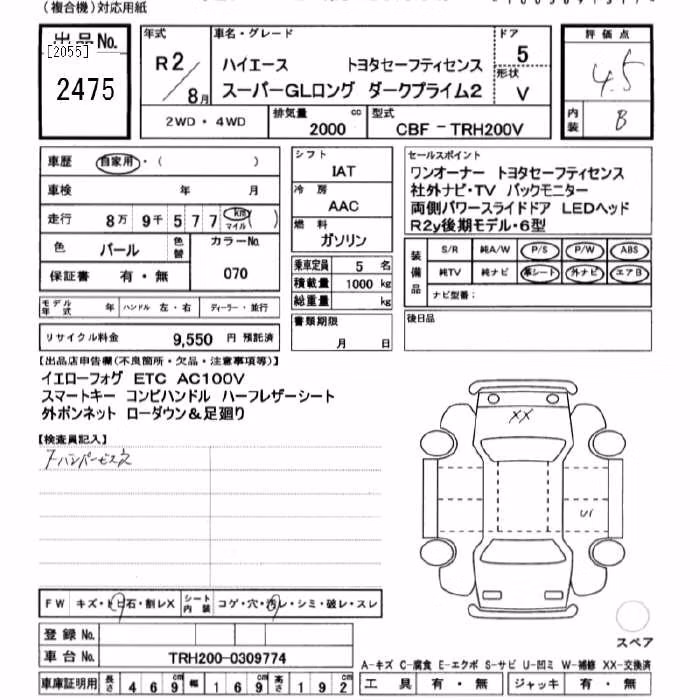 (複合機)対応用紙
出品No.
[2055]
2475
年式
R2/8月
車名・グレード
ハイエース トヨタセーフティセンス
スーパーGLロング ダークプライム2
ドア
5
形状
V
評価点
4.5
内装
B
2WD・4WD
排気量
2000 cc
型式
CBF-TRH200V
車歴 自家用・( )
車検 年 月
走行 8万9千577 km マイル ( )
色 パール 色替 カラーNo.
保証書 有・無 070
モデル年式 年 ハンドル 左・右 ディーラー・並行
リサイクル料金 9,550 円 預託済
シフト
IAT
冷房
AAC
燃料
ガソリン
乗車定員 5 名
積載量 1000 kg
総重量 kg
書類期限
月 日
セールスポイント
ワンオーナー トヨタセーフティセンス
社外ナビ・TV バックモニター
両側パワースライドドア LEDヘッド
R2y後期モデル・6型
装備品
S/R 純A/W P/S P/W ABS
純TV 純ナビ 革シート 外ナビ エアB
ナビ型番:
後日品
【出品店申告欄(不良箇所・欠品・注意事項等)】
イエローフォグ ETC AC100V
スマートキー コンビハンドル ハーフレザーシート
外ボンネット ローダウン&足廻り
【検査員記入】
Fバンパービス穴
XX
U1
FW キズ・トビ石・割レX シート内装 コゲ・穴・汚レ・シミ・破レ・スレ
スペア
登録No.
車台No. TRH200-0309774
A-キズ C-腐食 E-エクボ S-サビ U-凹ミ W-補修 XX-交換済
車庫証明用 長さ 469 cm 幅 169 cm 高さ 192 cm
工具 有・無 ジャッキ 有・無